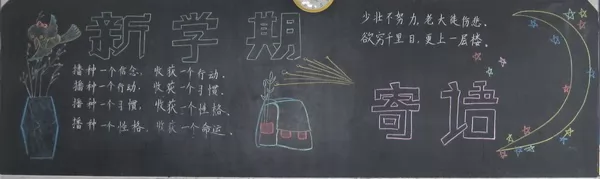 新学期
播种一个信念，收获一个行动。
播种一个行动，收获一个习惯。
播种一个习惯，收获一个性格。
播种一个性格，收获一个命运。
少壮不努力，老大徒伤悲。
欲穷千里目，更上一层楼。
寄语